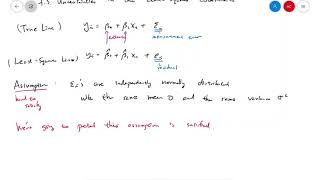 7.3. Uncertainties in the Least-Squares Coefficients
(True Line) yᵢ = β₀ + β₁xᵢ + εᵢ
measurement error
(Least-Square Line) yᵢ = β̂₀ + β̂₁xᵢ + eᵢ
residual
Assumption: εᵢ's are independently normally distributed
hard to satisfy with the same mean 0 and the same variance σ²
We're going to pretend this assumption is satisfied.